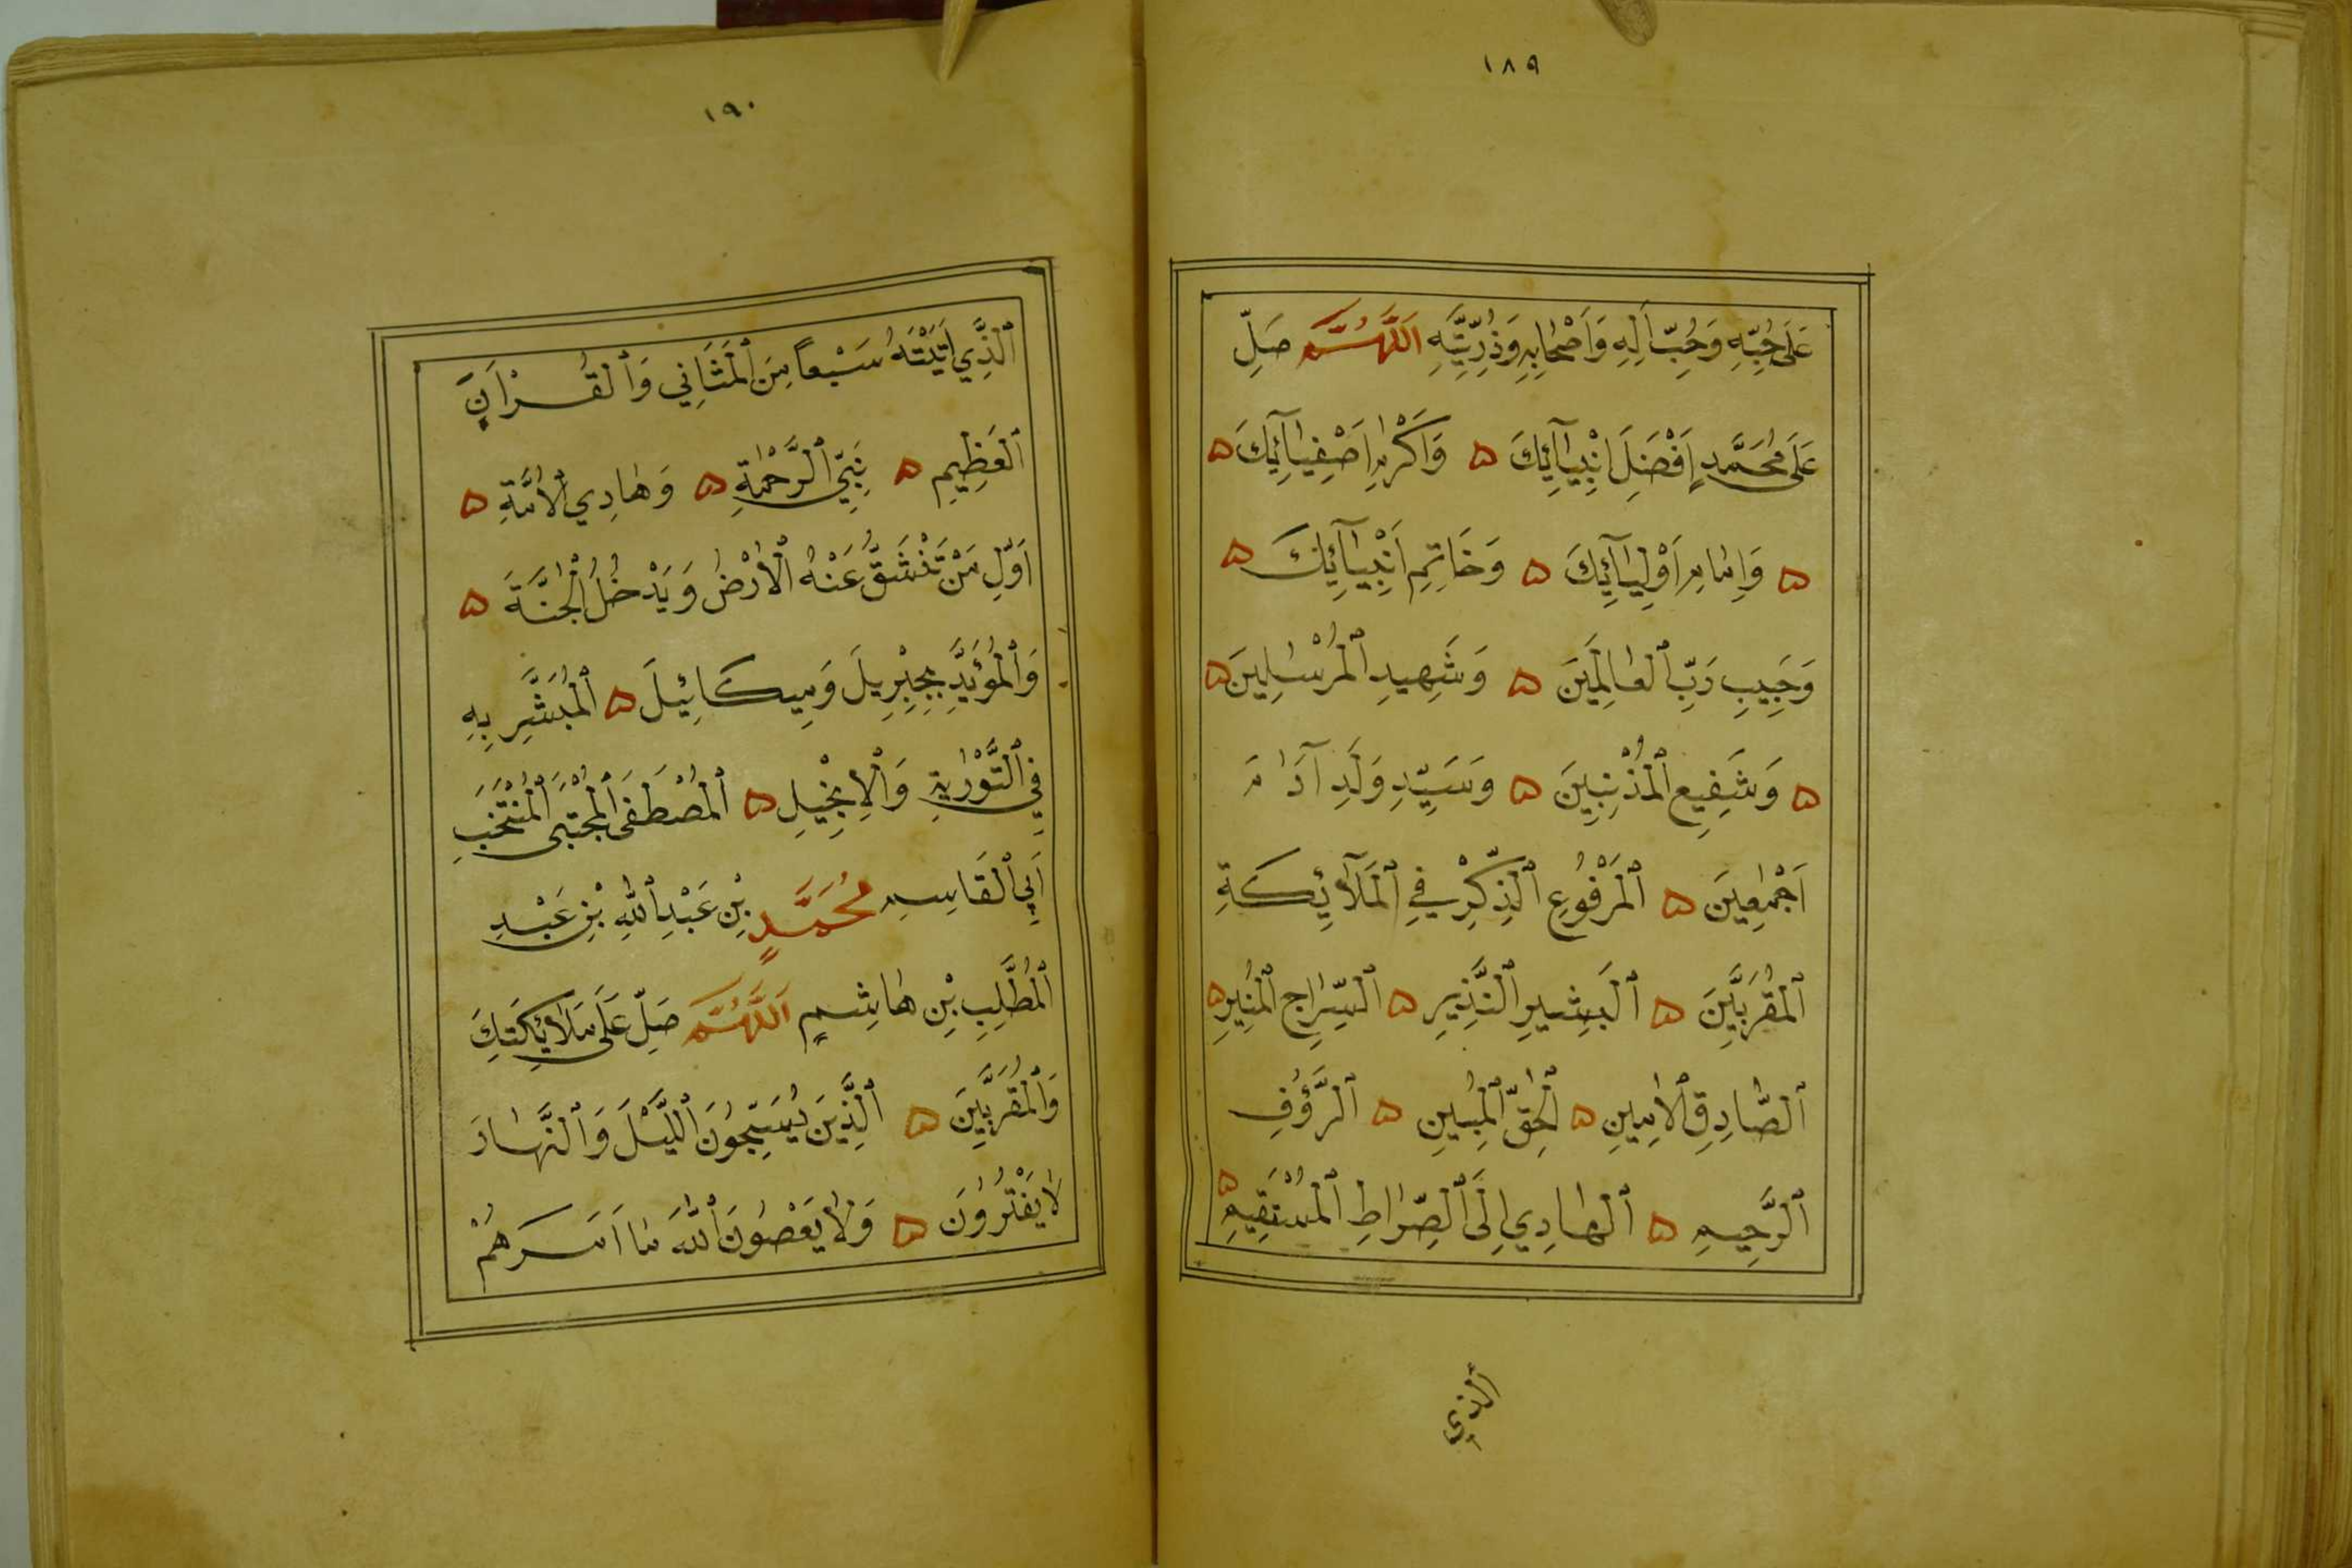 ١٨٩
عَلَى حُبِّهِ وَحُبِّ اَلِهِ وَاَصْحَابِهِ وَذُرِّيَّتِهِ اَللَّهُمَّ صَلِّ
عَلَى مُحَمَّدٍ اَفْضَلِ اَنْبِيَآئِكَ ۵ وَاَكْرَمِ اَصْفِيَآئِكَ ۵
۵ وَاِمَامِ اَوْلِيَآئِكَ ۵ وَخَاتِمِ اَنْبِيَآئِكَ ۵
وَحَبِيبِ رَبِّ ٱلْعَالَمِينَ ۵ وَشَهِيدِ ٱلْمُرْسَلِينَ ۵
۵ وَشَفِيعِ ٱلْمُذْنِبِينَ ۵ وَسَيِّدِ وَلَدِ آدَامَ
اَجْمَعِينَ ۵ ٱلْمَرْفُوعِ ٱلذِّكْرِ فِي ٱلْمَلَآئِكَةِ
ٱلْمُقَرَّبِينَ ۵ ٱلْبَشِيرِ ٱلنَّذِيرِ ۵ ٱلسِّرَاجِ ٱلْمُنِيرِ ۵
ٱلصَّادِقِ ٱلْاَمِينِ ۵ ٱلْحَقِّ ٱلْمُبِينِ ۵ ٱلرَّؤُفِ
ٱلرَّحِيمِ ۵ ٱلْهَادِي اِلَى ٱلصِّرَاطِ ٱلْمُسْتَقِيمِ ۵
ٱلَّذِي
١٩٠
ٱلَّذِي اَتَيْتَهُ سَبْعاً مِنَ ٱلْمَثَانِي وَٱلْقُرْاَنَِ
ٱلْعَظِيمِ ۵ نَبِيِّ ٱلرَّحْمَةِ ۵ وَهَادِي ٱلْاُمَّةِ ۵
اَوَّلِ مَنْ تَنْشَقُّ عَنْهُ ٱلْاَرْضُ وَيَدْخُلُ ٱلْجَنَّةَ ۵
وَٱلْمُؤَيَّدِ بِجِبْرِيلَ وَمِيكَائِيلَ ۵ ٱلْمُبَشَّرِ بِهِ
فِي ٱلتَّوْرَيةِ وَٱلْاِنْجِيلِ ۵ ٱلْمُصْطَفَى ٱلْمُجْتَبَى ٱلْمُنْتَخَبِ
اَبِي ٱلْقَاسِمِ مُحَمَّدٍ بْنِ عَبْدِ ٱللّٰهِ بْنِ عَبْدِ
ٱلْمُطَّلِبِ بْنِ هَاشِمٍ اَللَّهُمَّ صَلِّ عَلَى مَلَائِكَتِكَ
وَٱلْمُقَرَّبِينَ ۵ ٱلَّذِينَ يُسَبِّحُونَ ٱللَّيْلَ وَٱلنَّهَارَ
لَا يَفْتُرُونَ ۵ وَلَا يَعْصُونَ ٱللّٰهَ مَا اَمَرَهُمْ